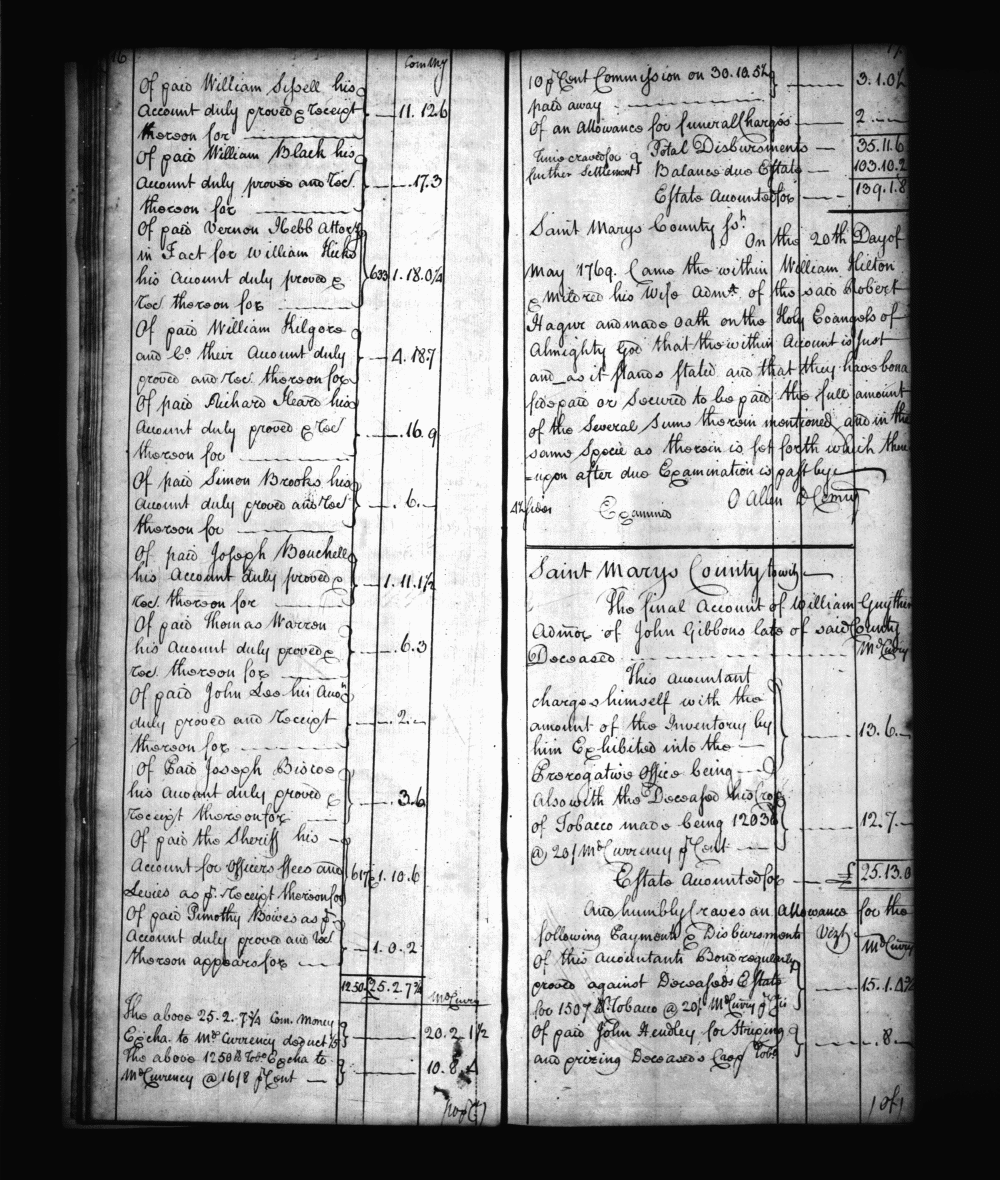 16
Com My
Of paid William Sissell his
Account duly proved & receipt 11.12.6
thereon for
Of paid William Black his
Account duly proved and Rec.t 17.3
thereon for
Of paid Vernon Hebb Attor.y
in Fact for William Hicks
his Account duly proved & 633 1.18.0¼
Rec.t thereon for
Of paid William Kilgore
and Co. their Account duly 4.18.7
proved and Rec.t thereon for
Of paid Richard Heard his
Account duly proved & Rec.t 16.9
thereon for
Of paid Simon Brooks his
Account duly proved and Rec.t 6.-
thereon for
Of paid Joseph Bouchell
his Account duly proved & 1.11.1½
Rec.t thereon for
Of paid Thomas Warren
his Account duly proved & 6.3
Rec.t thereon for
Of paid John Lee his Acco.t
duly proved and receipt 2.-
thereon for
Of Paid Joseph Biscoe
his Account duly proved & 3.6
receipt thereon for
Of paid the Sheriff his
Account for Officers ffees and 617 1.10.6
Levies as p. receipt thereon for
Of paid Timothy Bowes as p.
Account duly proved and Rec.t 1.0.2
thereon appears for
1250 £25.2.7¾
Md Curry
The above 25.2.7¾ Com. Money
Excha. to Md Currency deduct 20.2.1½
The above 1250 lb Tobo. Excha to
Md Currency @ 16/8 p Cent 10.8.4
17
10 p Cent Commission on 30.10.5½ 3.1.0½
paid away
Of an Allowance for funeral Charges 2.-
Total Disbursments 35.11.6
Time craved for
further Settlement
Ballance due Estate 103.10.2
Estate Accounted for 139.1.8
Saint Marys County ss.t
On the 20th Day of
May 1769. Came the within William Hilton
& Mildred his Wife Adm.x of the said Robert
Hagur and made Oath on the Holy Evangels of
Almighty God that the within Account is Just
and as it stands stated and that they have bona
fide paid or Secured to be paid the full amount
of the Several Sums therein mentioned and in the
same Specie as therein is set forth which there
=upon after due Examination is past by
4½ sides Examined O Allen D Comry
Saint Marys County towit
The final Account of William Guyther
Admor of John Gibbons late of said County
Deceased Md Curry
This accountant
charges himself with the
amount of the Inventory by 13.6.-
him Exhibited into the
Prerogative Office being
Also with the Deceased his Crop
of Tobacco made being 1203 12.7.-
@ 20/ Md Currency p Cent
Estate Accounted for £ 25.13.0
And humbly Craves an Allowance for the
following Payments & Disbursments Vizt Md Curry
Of this Accountants Bond regularly
proved against Deceaseds Estate
for 1507 lb Tobacco @ 20/ Md Curry p Ct 15.1.4¾
Of paid John Hendley for Striping
and prizing Deceaseds Crop Tobo. 8.-